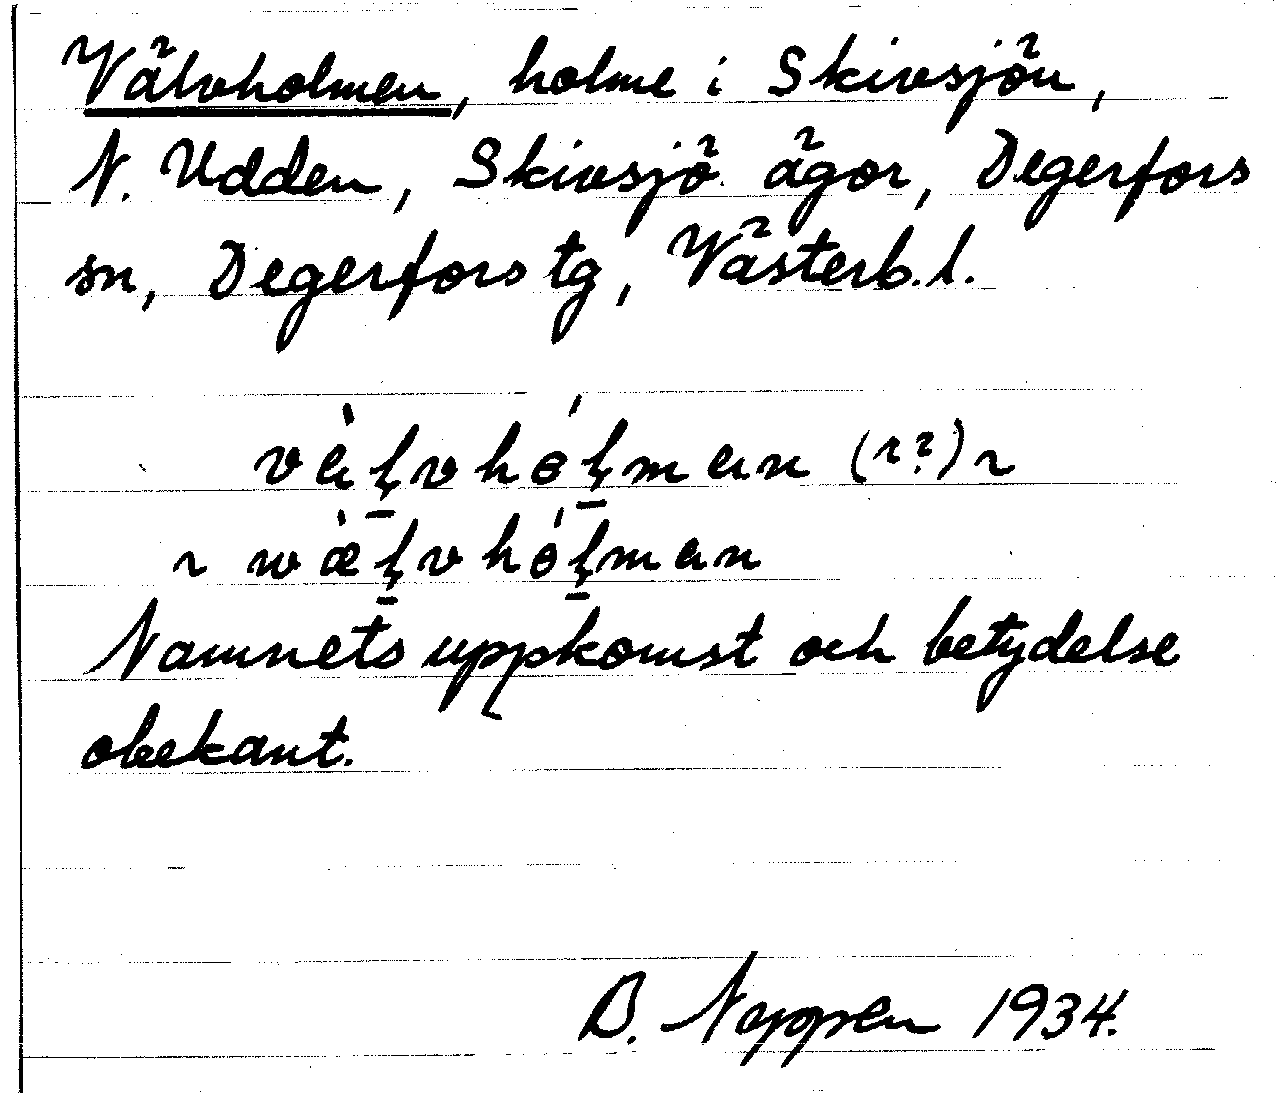 Välvholmen, holme i Skivsjön,
N. Udden, Skivsjö ägor, Degerfors
sn, Degerfors tg, Västerb. l.
vàḷvhóḷman (~?) ~
~ wæ̀ḷvhóḷman
Namnets uppkomst och betydelse
obekant.
B. Nyppen 1934.